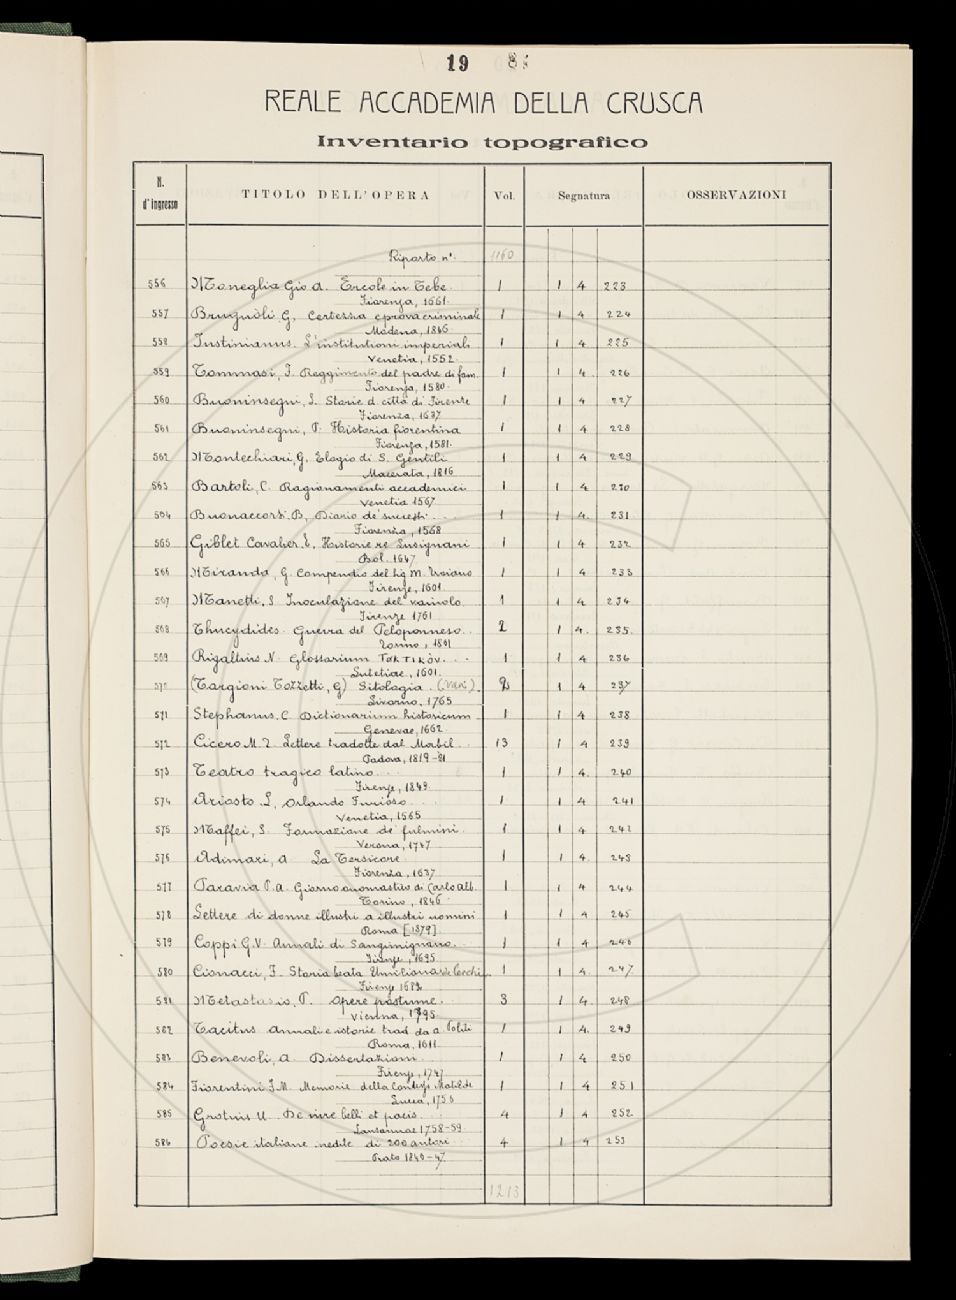 19
REALE ACCADEMIA DELLA CRUSCA
Inventario topografico
N. d'ingresso TITOLO DELL'OPERA Vol. Segnatura OSSERVAZIONI
Riporto n°. 1160
556 Moneglia Gio A. Ercole in Tebe. 1 1 4 223
Fiorenza, 1661.
557 Brugnoli, G. Certezza e prova criminale 1 1 4 224
Modena, 1846.
558 Justinianus. L'institutioni imperiali 1 1 4 225
Venetia, 1552.
559 Tommasi, F. Reggimento del padre di fam. 1 1 4 226
Fiorenza, 1580.
560 Buoninsegni, D. Storie d. città di Firenze 1 1 4 227
Fiorenza, 1637
561 Buoninsegni, P. Historia fiorentina 1 1 4 228
Fiorenza, 1581.
562 Montechiari, G. Elogio di S. Gentili 1 1 4 229
Macerata, 1816
563 Bartoli, C. Ragionamenti accademici 1 1 4 230
Venetia 1567
564 Buonaccorsi, B. Diario de' successi 1 1 4. 231
Fiorenza, 1568
565 Giblet Cavalier. E. Historie re Lusignani 1 1 4 232
Bol. 1647
566 Miranda, G. Compendio del Sig. M. Troiano 1 1 4 233
Firenze, 1601
567 Manetti, S. Inoculazione del vaiuolo 1 1 4 234
Firenze 1761
568 Thucydides. Guerra del Peloponneso 2 1 4. 235.
Torino, 1861
569 Rigaltius N. Glossarium Τακτικόν. 1 1 4 236
Lutetiae, 1601.
570 (Targioni Tozzetti, G) Sitologia. (Vari) 1 4 237
Livorno, 1765
571 Stephanus. C. Dictionarium historicum 1 1 4 238
Genevae, 1662
572 Cicero M. T. Lettere tradotte dal 13 1 4 239
Padova, 1819-21
573 Teatro tragico latino 1 1 4. 240
Firenze, 1849.
574 Ariosto L, Orlando Furioso 1 1 4 241
Venetia, 1565
575 Maffei, S. Formazione de' fulmini. 1 1 4 242
Verona, 1747
576 Adimari, A La Tersicore 1 1 4. 243
Fiorenza, 1637
577 Paravia P. A. Giorno onomastico di Carlo Alb. 1 1 4 244
Torino, 1846
578 Lettere di donne illustri a illustri uomini 1 1 4 245
Roma [1879]
579 Coppi G.V. Annali di Sangimignano. 1 1 4 246
Firenze, 1695
580 Cionacci, F. Storia beata Umiliana de Cerchi 1 1 4. 247.
Firenze 1682
581 Metastasio, P. Opere postume. 3 1 4. 248
Vienna, 1795
582 Tacitus Annali e istorie trad da A. Politi 1 1 4. 249
Roma, 1611.
583 Benevoli, A Dissertazioni 1 1 4 250
Firenze, 1747
584 Fiorentini F.M. Memorie della Contessa Matilde 1 1 4 251
Lucca, 1756
585 Grotius U. De iure belli et pacis. 4 1 4 252
Lausannae 1758-59.
586 Poesie italiane inedite di 200 autori 4 1 4 253
Prato 1846-47
1213